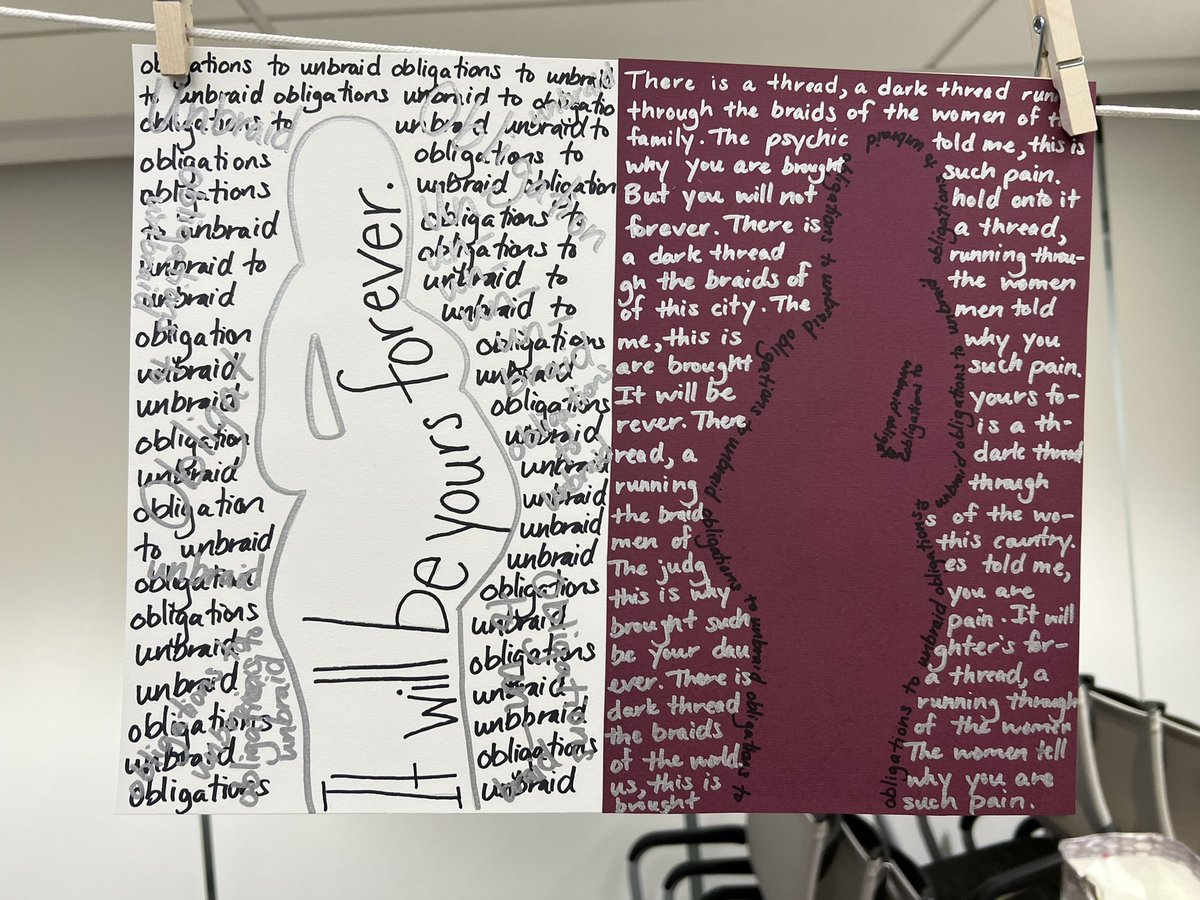 obligations to unbraid obligations to unbraid
to unbraid obligations unbraid to obligatio
obligations to unbraid unbraid to
obligations obligations to
obligations unbraid obligation
to unbraid obligations to
unbraid to obligations to
unbraid unbraid to
obligation unbraid to
unbraid obligations
unbraid unbraid
obligation obligations
unbraid unbraid
obligation unbraid
to unbraid unbraid
obligation unbraid
obligations unbraid
unbraid obligations
unbraid unbraid
obligations obligations
unbraid unbraid
obligations unbbraid
obligations
unbraid
It will be yours forever.
There is a thread, a dark thread runn
through the braids of the women of
family. The psychic told me, this is
why you are brought such pain.
But you will not hold onto it
forever. There is a thread,
a dark thread running throu-
gh the braids of the women
of this city. The men told
me, this is why you
are brought such pain.
It will be yours fo-
rever. There is a th-
read, a dark thread
running through
the braid s of the wo-
men of this country.
The judg es told me,
this is why you are
brought such pain. It will
be your dau ghter's for-
ever. There is a thread, a
dark thread running through
the braids of the women
of the world. The women tell
us, this is why you are
brought such pain.
obligations to unbraid obligations to unbraid obligations to unbraid obligations to unbraid obligations to
obligations to unbraid obligations to unbraid obligations to unbraid obligations to unbraid
obligations to